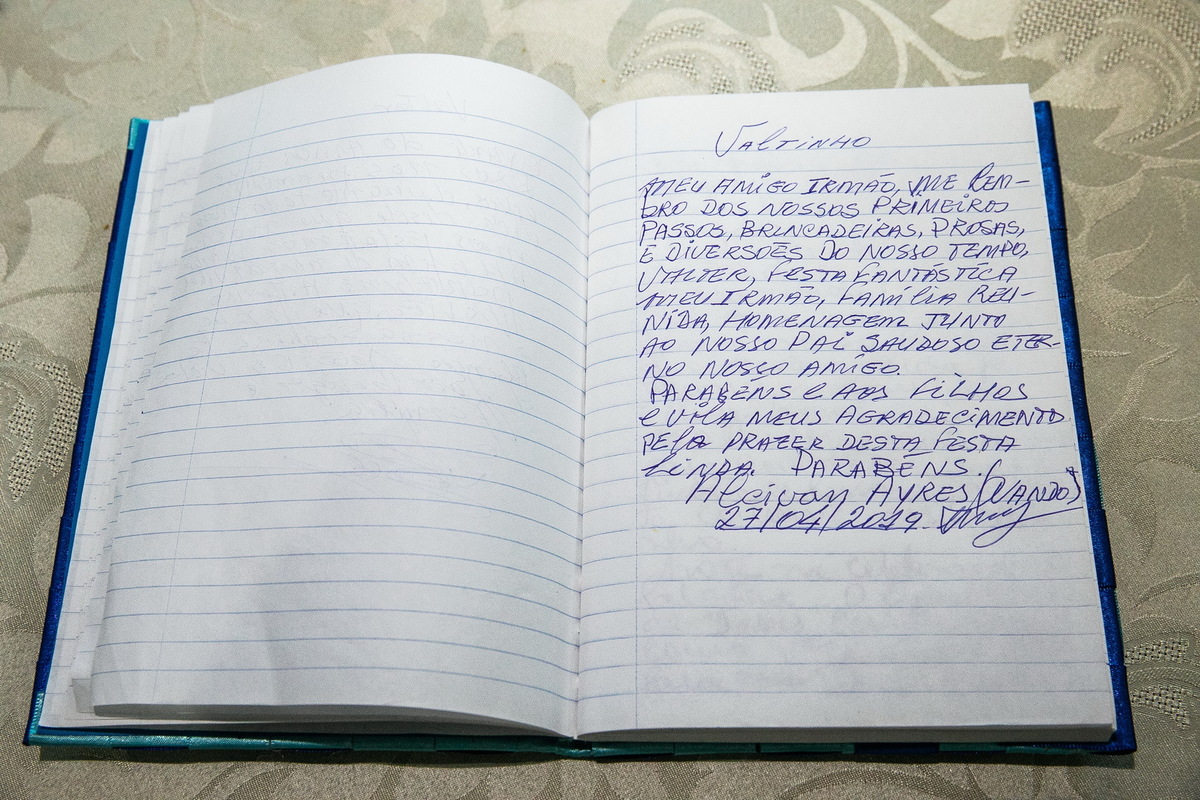 Valtinho
MEU AMIGO IRMÃO, ME LEM-
BRO DOS NOSSOS PRIMEIROS
PASSOS, BRINCADEIRAS, PROSAS,
E DIVERSÕES DO NOSSO TEMPO,
VALTER, FESTA FANTÁSTICA
MEU IRMÃO, FAMÍLIA REU-
NIDA, HOMENAGEM JUNTO
AO NOSSO PAI SAUDOSO ETER-
NO NOSSO AMIGO.
PARABÉNS e AOS FILHOS
e MEUS AGRADECIMENTO
PELO PRAZER DESTA FESTA
LINDA. PARABÉNS.
Alcivan AYRES (VANDO)
27/04/2019